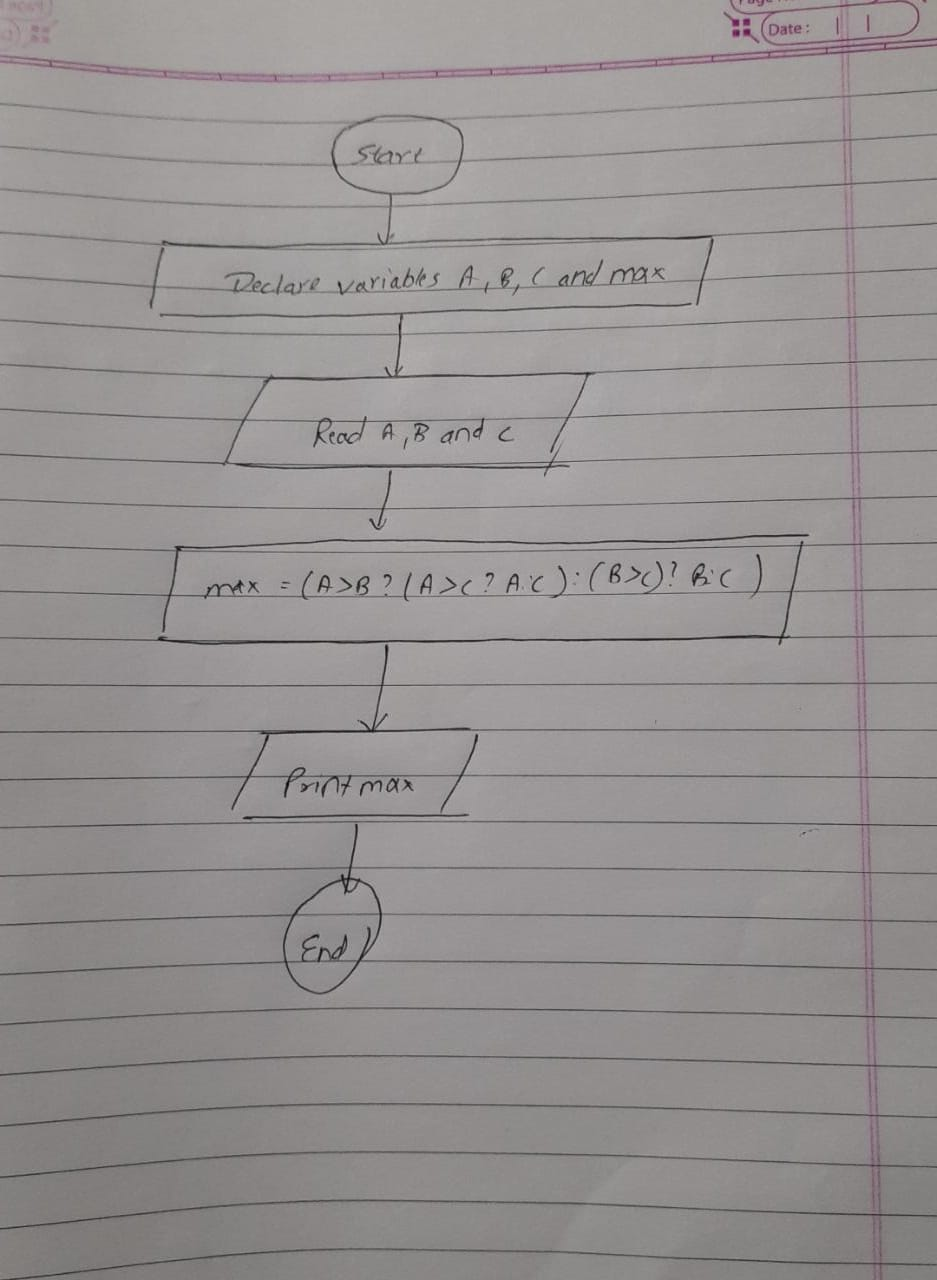 Date :
Start
Declare variables A, B, C and max
Read A, B and C
max = (A>B ? (A>C ? A:C) : (B>C) ? B:C )
Print max
End